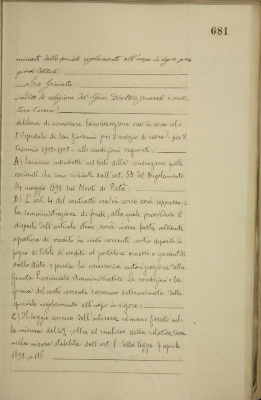 681
minate dallo speciale regolamento all'uopo in vigore presso
questo Istituto.
La Giunta
udita la relazione del Signor Direttore generale e
delibera di rinnovare la convenzione ora in corso col
l'Ospedale di San Giovanni per il servizio di cassa per il
triennio 1923-1925 - alle condizioni seguenti:
A) Saranno introdotte nel testo della convenzione quelle
varianti che sono richieste dall'art. 53 del Regolamento
14 maggio 1898 sui Monti di Pietà.
B) L'art. 4 del contratto ora in corso sarà soppresso;
la somministrazione di fondi, alla quale provvedeva il
disposto dell'articolo stesso, sarà invece fatta mediante
apertura di credito in conto corrente contro deposito in
pegno di titoli di credito al portatore emessi o garantiti
dallo Stato e previa la necessaria autorizzazione della
Giunta Provinciale Amministrativa. Le condizioni e la
forma del conto corrente saranno determinate dallo
speciale regolamento all'uopo in vigore;
C) Il saggio annuo dell'interesse rimane fissato nel
la misura del 4%, oltre al rimborso della relativa tassa
nella misura stabilita dall'art. 1 della legge 7 aprile
1892, n. 115